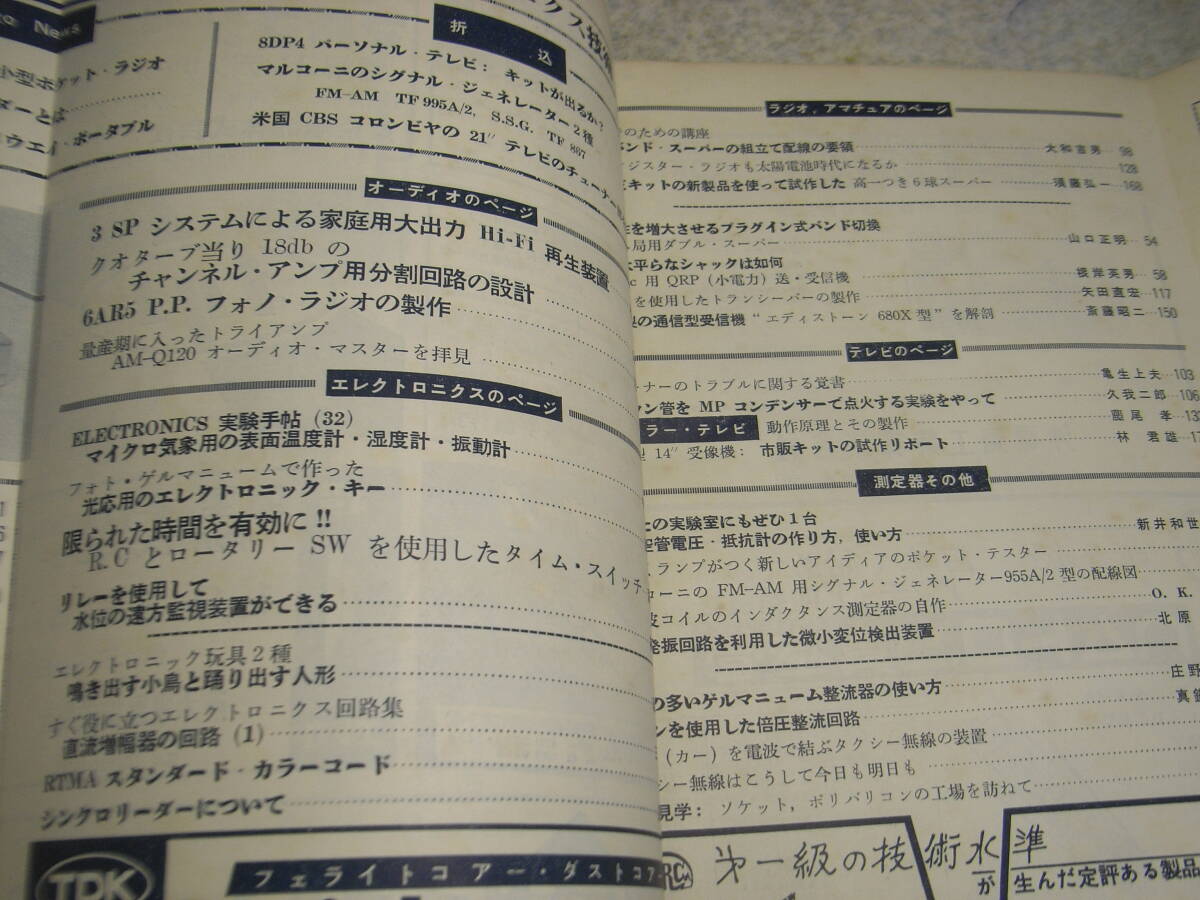 News
小型ポケット・ラジオ
ダーとは
ウエイ・ポータブル
クス技術
折込
8DP4 パーソナル・テレビ: キットが出るか?
マルコーニのシグナル・ジェネレーター2種
FM-AM TF995A/2, S.S.G. TF 867
米国 CBS コロンビヤの 21″ テレビのチューナー
オーディオのページ
3 SP システムによる家庭用大出力 Hi-Fi 再生装置
クオターブ当り 18db の
チャンネル・アンプ用分割回路の設計
6AR5 P.P. フォノ・ラジオの製作
量産期に入ったトライアンプ
AM-Q120 オーディオ・マスターを拝見
エレクトロニクスのページ
ELECTRONICS 実験手帖 (32)
マイクロ気象用の表面温度計・湿度計・振動計
フォト・ゲルマニュームで作った
光応用のエレクトロニック・キー
限られた時間を有効に!!
R.C とロータリー SW を使用したタイム・スイッチ
リレーを使用して
水位の遠方監視装置ができる
エレクトロニック玩具2種
鳴き出す小鳥と踊り出す人形
すぐ役に立つエレクトロニクス回路集
直流増幅器の回路 (1)
RTMA スタンダード・カラーコード
シンクロリーダーについて
TDK
フェライトコアー・ダストコアー
ラジオ,アマチュアのページ
のための講座
バンド・スーパーの組立て配線の要領 大和宣男 98
ンジスター・ラジオも太陽電池時代になるか 128
キットの新製品を使って試作した 高一つき6球スーパー 須藤弘一 168
を増大させるプラグイン式バンド切換
局用ダブル・スーパー 山口正明 54
平らなシャックは如何
c 用 QRP (小電力) 送・受信機 根岸英男 58
を使用したトランシーバーの製作 矢田直宏 117
の通信型受信機 “エディストーン 680X 型” を解剖 斎藤昭二 150
テレビのページ
ーナーのトラブルに関する覚書 亀生上夫 103
ン管を MP コンデンサーで点火する実験をやって 久我二郎 106
ラー・テレビ 動作原理とその製作 孝
型 14″ 受像機: 市販キットの試作リポート 林 君雄
測定器その他
の実験室にもぜひ1台
空管電圧・抵抗計の作り方,使い方 新井和世
ランプがつく新しいアイディアのポケット・テスター
ローニの FM-AM 用シグナル・ジェネレーター955A/2 型の配線図
波コイルのインダクタンス測定器の自作 O. K.
発振回路を利用した微小変位検出装置 北原
の多いゲルマニューム整流器の使い方 庄野
ンを使用した倍圧整流回路
(カー) を電波で結ぶタクシー無線の装置
シー無線はこうして今日も明日も
見学: ソケット,ポリバリコンの工場を訪ねて
第一級の技術水準
が
生んだ定評ある製品